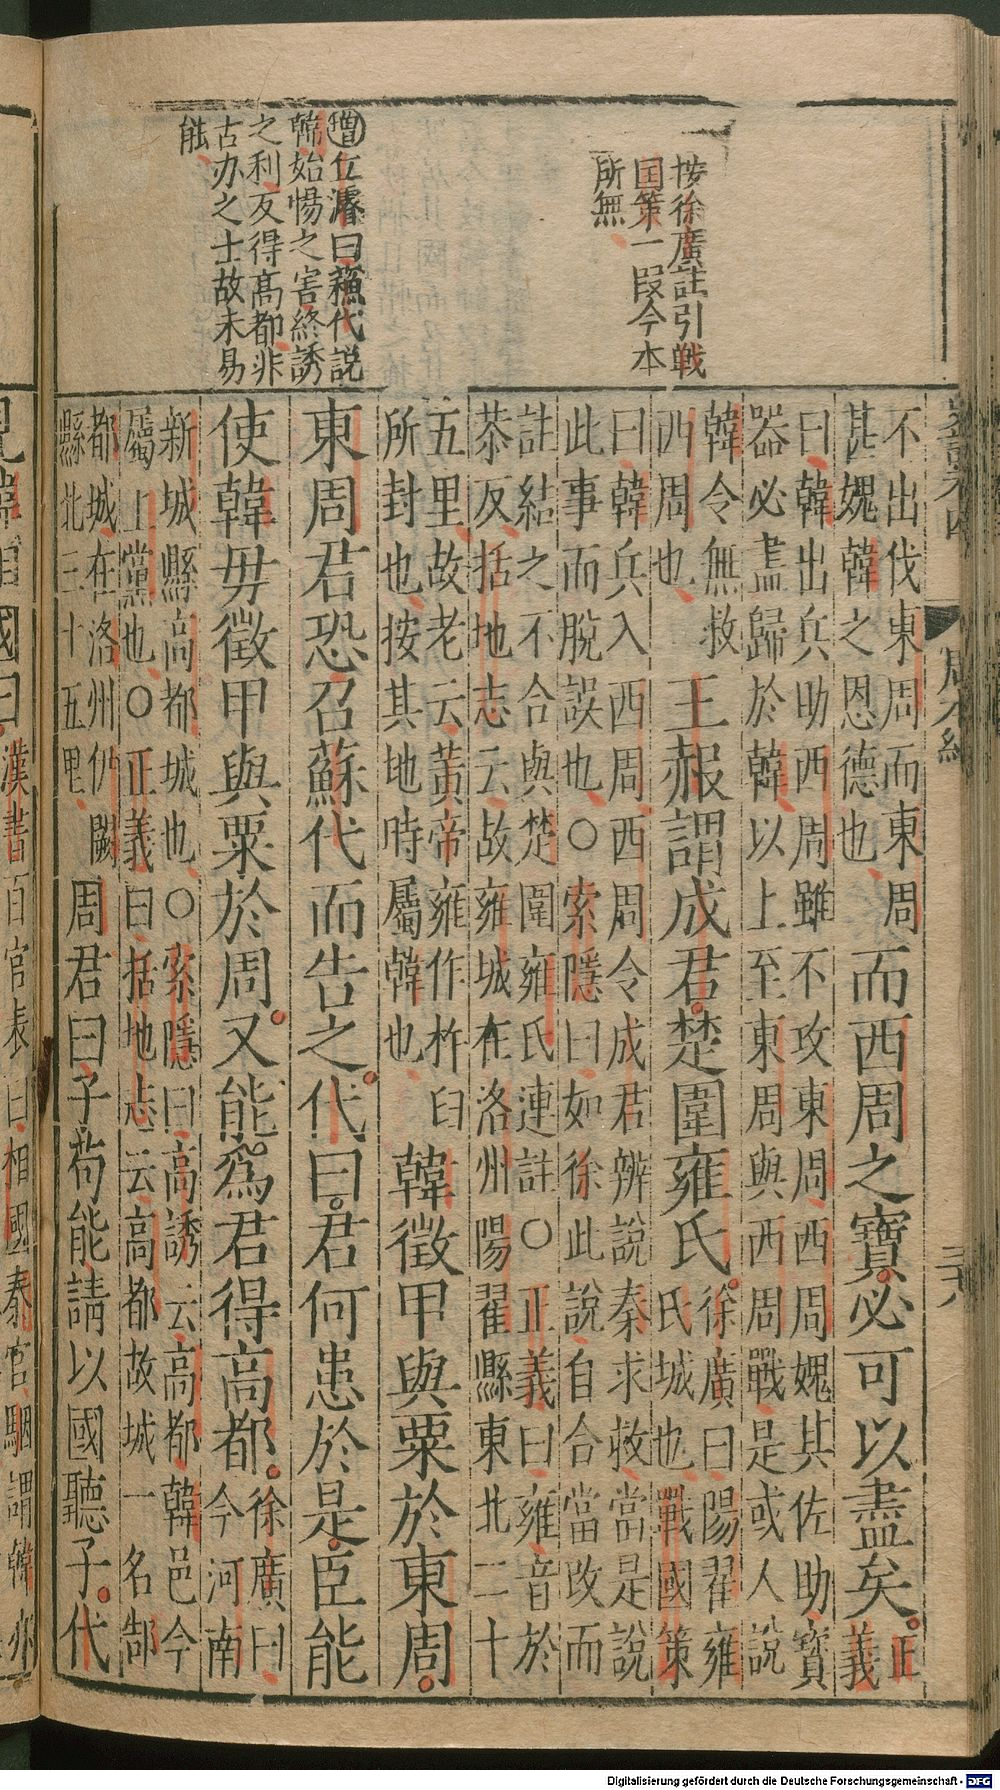 按徐廣註引戰
国策一段今本
所無
增仁濬曰蘓代説
韓始愓之害終誘
之利反得髙都非
古办之士故未易
能
周本紀
不出伐東周而東周
甚媿韓之恩德也
而西周之寶必可以盡矣。正
義
曰韓出兵助西周雖不攻東周西周媿其佐助寶
器必盡歸於韓以上至東周與西周戰是或人說
韓令無救
西周也
王赧謂成君。楚圍雍氏。徐廣曰陽翟雍
氏城也戰國策
曰韓兵入西周西周令成君辨說秦求救當是說
此事而脫誤也○索隱曰如徐此說自合當改而
註結之不合與楚圍雍氏連註○正義曰雍音於
恭反括地志云故雍城在洛州陽翟縣東北二十
五里故老云黃帝雍作杵臼
所封也按其地時屬韓也
韓徵甲與粟於東周。
東周君恐召蘇代而告之。代曰。君何患於是。臣能
使韓毋徵甲與粟於周。又能爲君得高都。徐廣曰
今河南
新城縣高都城也○索隱曰高誘云高都韓邑今
屬上黨也○正義曰括地志云高都故城一名郜
都城在洛州伊闕
縣北三十五里
周君曰子苟能請以國聽子。代
見韓相國曰。漢書百官表曰相國秦官駰謂韓亦
Digitalisierung gefördert durch die Deutsche Forschungsgemeinschaft - DFG